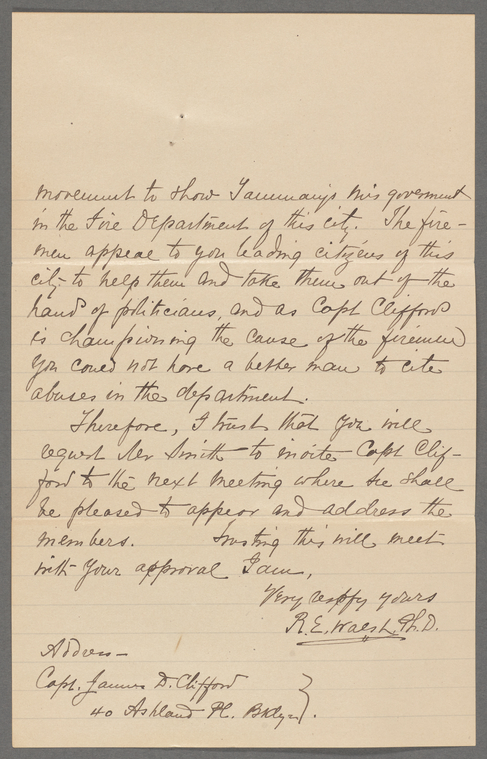 movement to show Tammanys misgoverment
in the Fire Department of this city. The fire-
men appeal to you leading citizens of this
city to help them and take them out of the
hands of politicians, and as Capt Clifford
is championing the cause of the firemen
you could not have a better man to cite
abuses in the department.
Therefore, I trust that you will
request Mr Smith to invite Capt Clif-
ford to the next meeting where he shall
be pleased to appear and address the
members. Trusting this will meet
with your approval I am,
Very respfy yours
R. E. Walsh, Ph.D.
Address—
Capt. James D. Clifford
40 Ashland Pl. Bklyn.